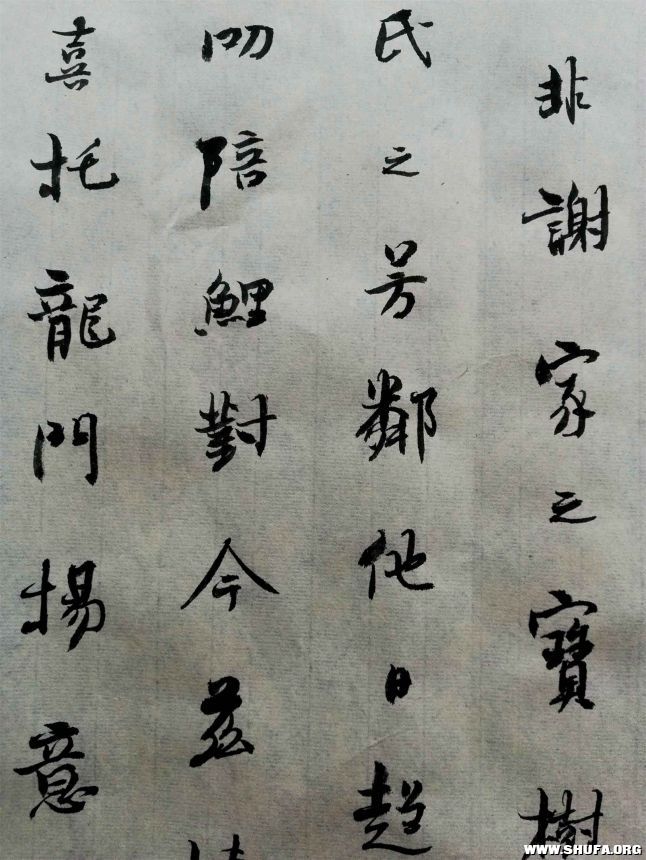 非謝家之寶樹
氏之芳鄰他日趨
叨陪鯉對今茲
喜托龍門揚意
WWW.SHUFA.ORG